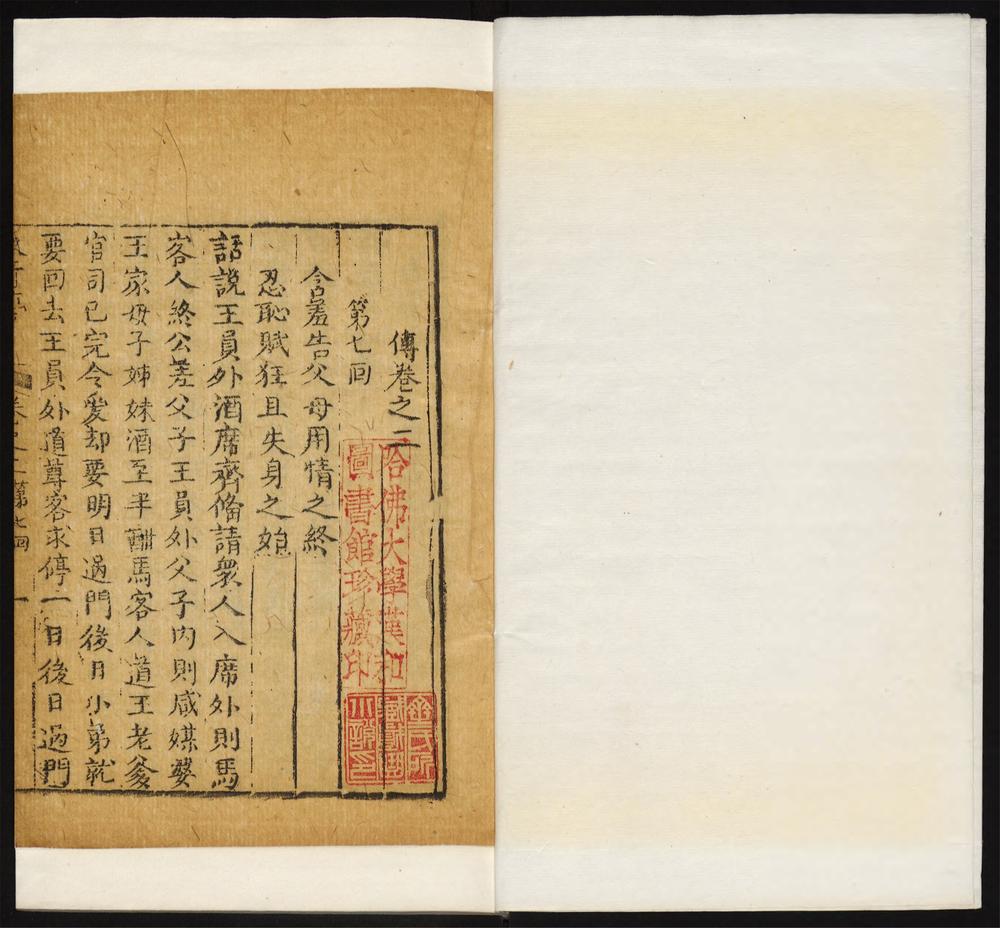 傳卷之二
第七回
含羞告父母用情之終
忍恥賦狂且失身之始
話說王員外酒席齊俻請衆人入席外則馬
客人終公差父子王員外父子内則咸媒婆
王家母子姊妹酒至半酣馬客人道王老爹
官司已完令爱却要明日過門後日小弟就
要回去王員外道尊客求停一日後日過門
卷之二第七回 一
哈佛大學漢和
圖書館珍藏印
齊氏所
藏戲曲
小說印